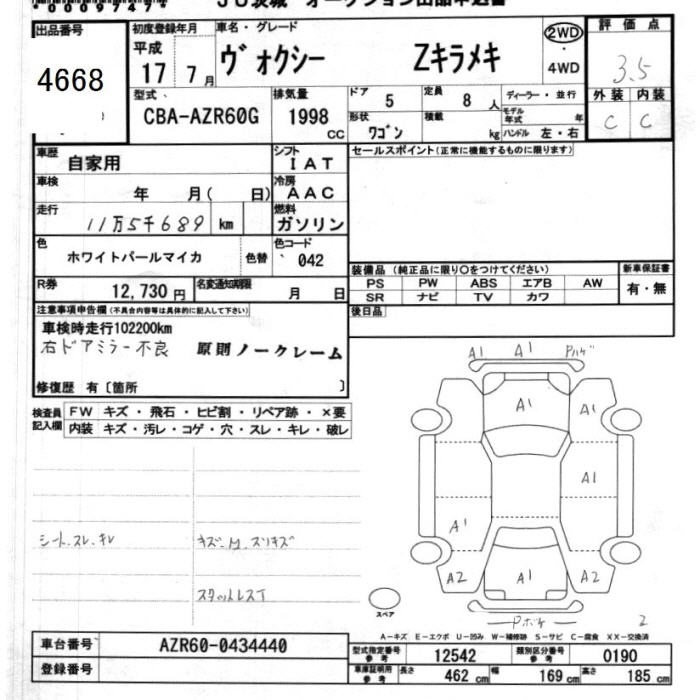 JU茨城 オークション出品申込書
出品番号 初度登録年月 車名・グレード 評価点
4668
平成 17 7月 ヴォクシー Zキラメキ 2WD・4WD 3.5
型式 排気量 ドア 5 定員 8人 ディーラー・並行 外装 内装
CBA-AZR60G 1998 CC 形状 ワゴン 積載 kg モデル年式 年 ハンドル 左・右 C C
車歴 自家用 シフト IAT セールスポイント(正常に機能するものに限ります)
車検 年 月( 日) 冷房 AAC
走行 11万5千689 km 燃料 ガソリン
色 ホワイトパールマイカ 色替 色コード 042
装備品 (純正品に限り○をつけてください) 新車保証書
R券 12,730円 名変通知期限 月 日
PS PW ABS エアB AW 有・無
SR ナビ TV カワ
注意事項申告欄(不具合内容等は具体的に記入して下さい) 後日品
車検時走行102200km
右ドアミラー不良 原則ノークレーム
修復歴 有〔箇所 〕
検査員記入欄 FW キズ・飛石・ヒビ割・リペア跡・×要
内装 キズ・汚レ・コゲ・穴・スレ・キレ・破レ
A1 A1 Pハゲ
A1 A1
A1
A1
A2 A1 A2
シート.スレ.キレ
スタットレスT
スペア
2
A-キズ E-エクボ U-凹み W-補修跡 S-サビ C-腐食 XX-交換済
車台番号 AZR60-0434440 型式指定番号 参考 12542 類別区分番号 参考 0190
登録番号 車庫証明用 参考 長さ 462 cm 幅 169 cm 高さ 185 cm